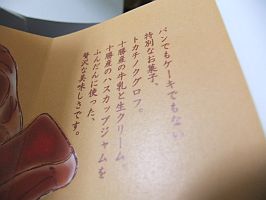 パンでもケーキでもない
特別なお菓子、
トカチノクグロフ。
十勝産の牛乳と生クリーム、
十勝産のハスカップジャムを
ふんだんに使った、
贅沢な美味しさです。